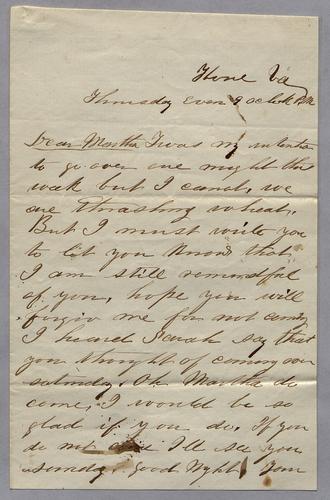 Home Va
Thursday Even 9 oclock PM
Dear Martha I was my intention
to go over one night this
week but I canot, we
are thrashing wheat.
But I must write you
to let you know that
I am still remindful
of you, hope you will
forgiv me for not coming
I heard Sarah say that
you thought of coming over
saturday. Oh Martha do
come, I would be so
glad if you do. If you
do not I'll see you
someday. Good Night